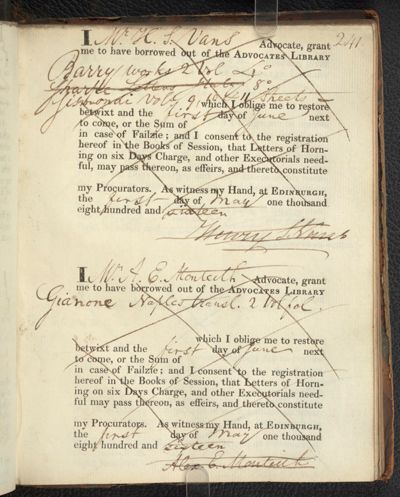 241
I, Mr H. J. Vans Advocate, grant
me to have borrowed out of the ADVOCATES LIBRARY
Barry works 2 Vol 4to
Vol 9 which I oblige me to restore
betwixt and the first day of June next
to come, or the Sum of
in case of Failzie; and I consent to the registration
hereof in the Books of Session, that Letters of Horn-
ing on six Days Charge, and other Executorials need-
ful, may pass thereon, as effeirs, and thereto constitute
my Procurators. As witness my Hand, at EDINBURGH,
the first day of May one thousand
eight hundred and sixteen
I, Mr A. E. Monteith Advocate, grant
me to have borrowed out of the ADVOCATES LIBRARY
Gianone Naples transl. 2 Vol fol.
which I oblige me to restore
betwixt and the first day of June next
to come, or the Sum of
in case of Failzie; and I consent to the registration
hereof in the Books of Session, that Letters of Horn-
ing on six Days Charge, and other Executorials need-
ful may pass thereon, as effeirs, and thereto constitute
my Procurators. As witness my Hand, at EDINBURGH,
the first day of May one thousand
eight hundred and sixteen
Alex E. Monteith